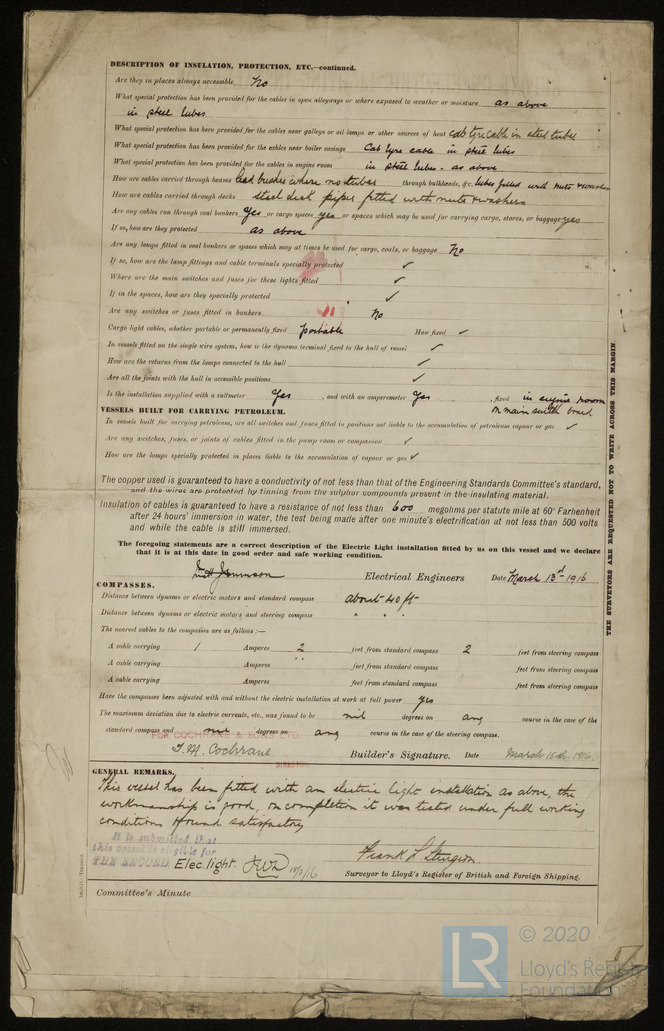 DESCRIPTION OF INSULATION, PROTECTION, ETC.—continued.
Are they in places always accessible No
What special protection has been provided for the cables in open alleyways or where exposed to weather or moisture as above
in steel tubes
What special protection has been provided for the cables near galleys or oil lamps or other sources of heat cab tyre cable in steel tubes
What special protection has been provided for the cables near boiler casings Cab tyre cable in steel tubes
What special protection has been provided for the cables in engine room in steel tubes - as above
How are cables carried through beams lead bushes where no tubes through bulkheads, &c. tubes fitted with nuts & washers
How are cables carried through decks steel deck pipes fitted with nuts & washers
Are any cables run through coal bunkers yes or cargo spaces yes or spaces which may be used for carrying cargo, stores, or baggage yes
If so, how are they protected as above
Are any lamps fitted in coal bunkers or spaces which may at times be used for cargo, coals, or baggage No
If so, how are the lamp fittings and cable terminals specially protected ✓
Where are the main switches and fuses for these lights fitted ✓
If in the spaces, how are they specially protected ✓
Are any switches or fuses fitted in bunkers No
Cargo light cables, whether portable or permanently fixed portable How fixed ✓
In vessels fitted on the single wire system, how is the dynamo terminal fixed to the hull of vessel ✓
How are the returns from the lamps connected to the hull ✓
Are all the joints with the hull in accessible positions ✓
Is the installation supplied with a voltmeter Yes , and with an amperemeter Yes , fixed in engine room
on main switch board
VESSELS BUILT FOR CARRYING PETROLEUM.
In vessels built for carrying petroleum, are all switches and fuses fitted in positions not liable to the accumulation of petroleum vapour or gas ✓
Are any switches, fuses, or joints of cables fitted in the pump room or companion ✓
How are the lamps specially protected in places liable to the accumulation of vapour or gas ✓
The copper used is guaranteed to have a conductivity of not less than that of the Engineering Standards Committee's standard,
and the wires are protected by tinning from the sulphur compounds present in the insulating material.
Insulation of cables is guaranteed to have a resistance of not less than 600 megohms per statute mile at 60° Farhenheit
after 24 hours' immersion in water, the test being made after one minute's electrification at not less than 500 volts
and while the cable is still immersed.
The foregoing statements are a correct description of the Electric Light installation fitted by us on this vessel and we declare
that it is at this date in good order and safe working condition.
Electrical Engineers Date March 13th 1916
COMPASSES.
Distance between dynamo or electric motors and standard compass about 40 ft
Distance between dynamo or electric motors and steering compass " " "
The nearest cables to the compasses are as follows:—
A cable carrying 1 Amperes 2 feet from standard compass 2 feet from steering compass
A cable carrying Amperes feet from standard compass feet from steering compass
A cable carrying Amperes feet from standard compass feet from steering compass
Have the compasses been adjusted with and without the electric installation at work at full power yes
The maximum deviation due to electric currents, etc., was found to be nil degrees on any course in the case of the
standard compass and nil degrees on any course in the case of the steering compass.
FOR COCHRANE & SONS LTD.
T. M. Cochrane Builder's Signature. Date March 15th 1916.
DIRECTOR
GENERAL REMARKS.
This vessel has been fitted with an electric light installation as above, the
workmanship is good, on completion it was tested under full working
conditions & found satisfactory
It is submitted that
this vessel is eligible for
THE RECORD. Elec. light.
Frank L. Sturgeon
Surveyor to Lloyd's Register of British and Foreign Shipping.
Committee's Minute
THE SURVEYORS ARE REQUESTED NOT TO WRITE ACROSS THIS MARGIN.
LR © 2020
Lloyd's Register
Foundation